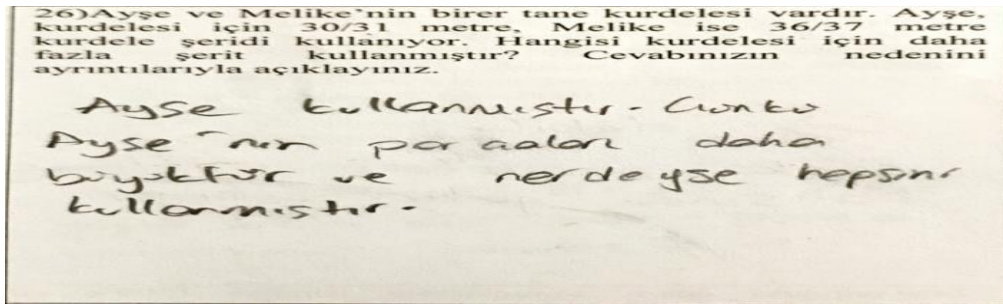 26)Ayşe ve Melike'nin birer tane kurdelesi vardır. Ayşe,
kurdelesi için 30/31 metre, Melike ise 36/37 metre
kurdele şeridi kullanıyor. Hangisi kurdelesi için daha
fazla şerit kullanmıştır? Cevabınızın nedenini
ayrıntılarıyla açıklayınız.
Ayşe kullanmıştır. Çünkü
Ayşe'nin parçaları daha
büyüktür ve nerdeyse hepsini
kullanmıştır.